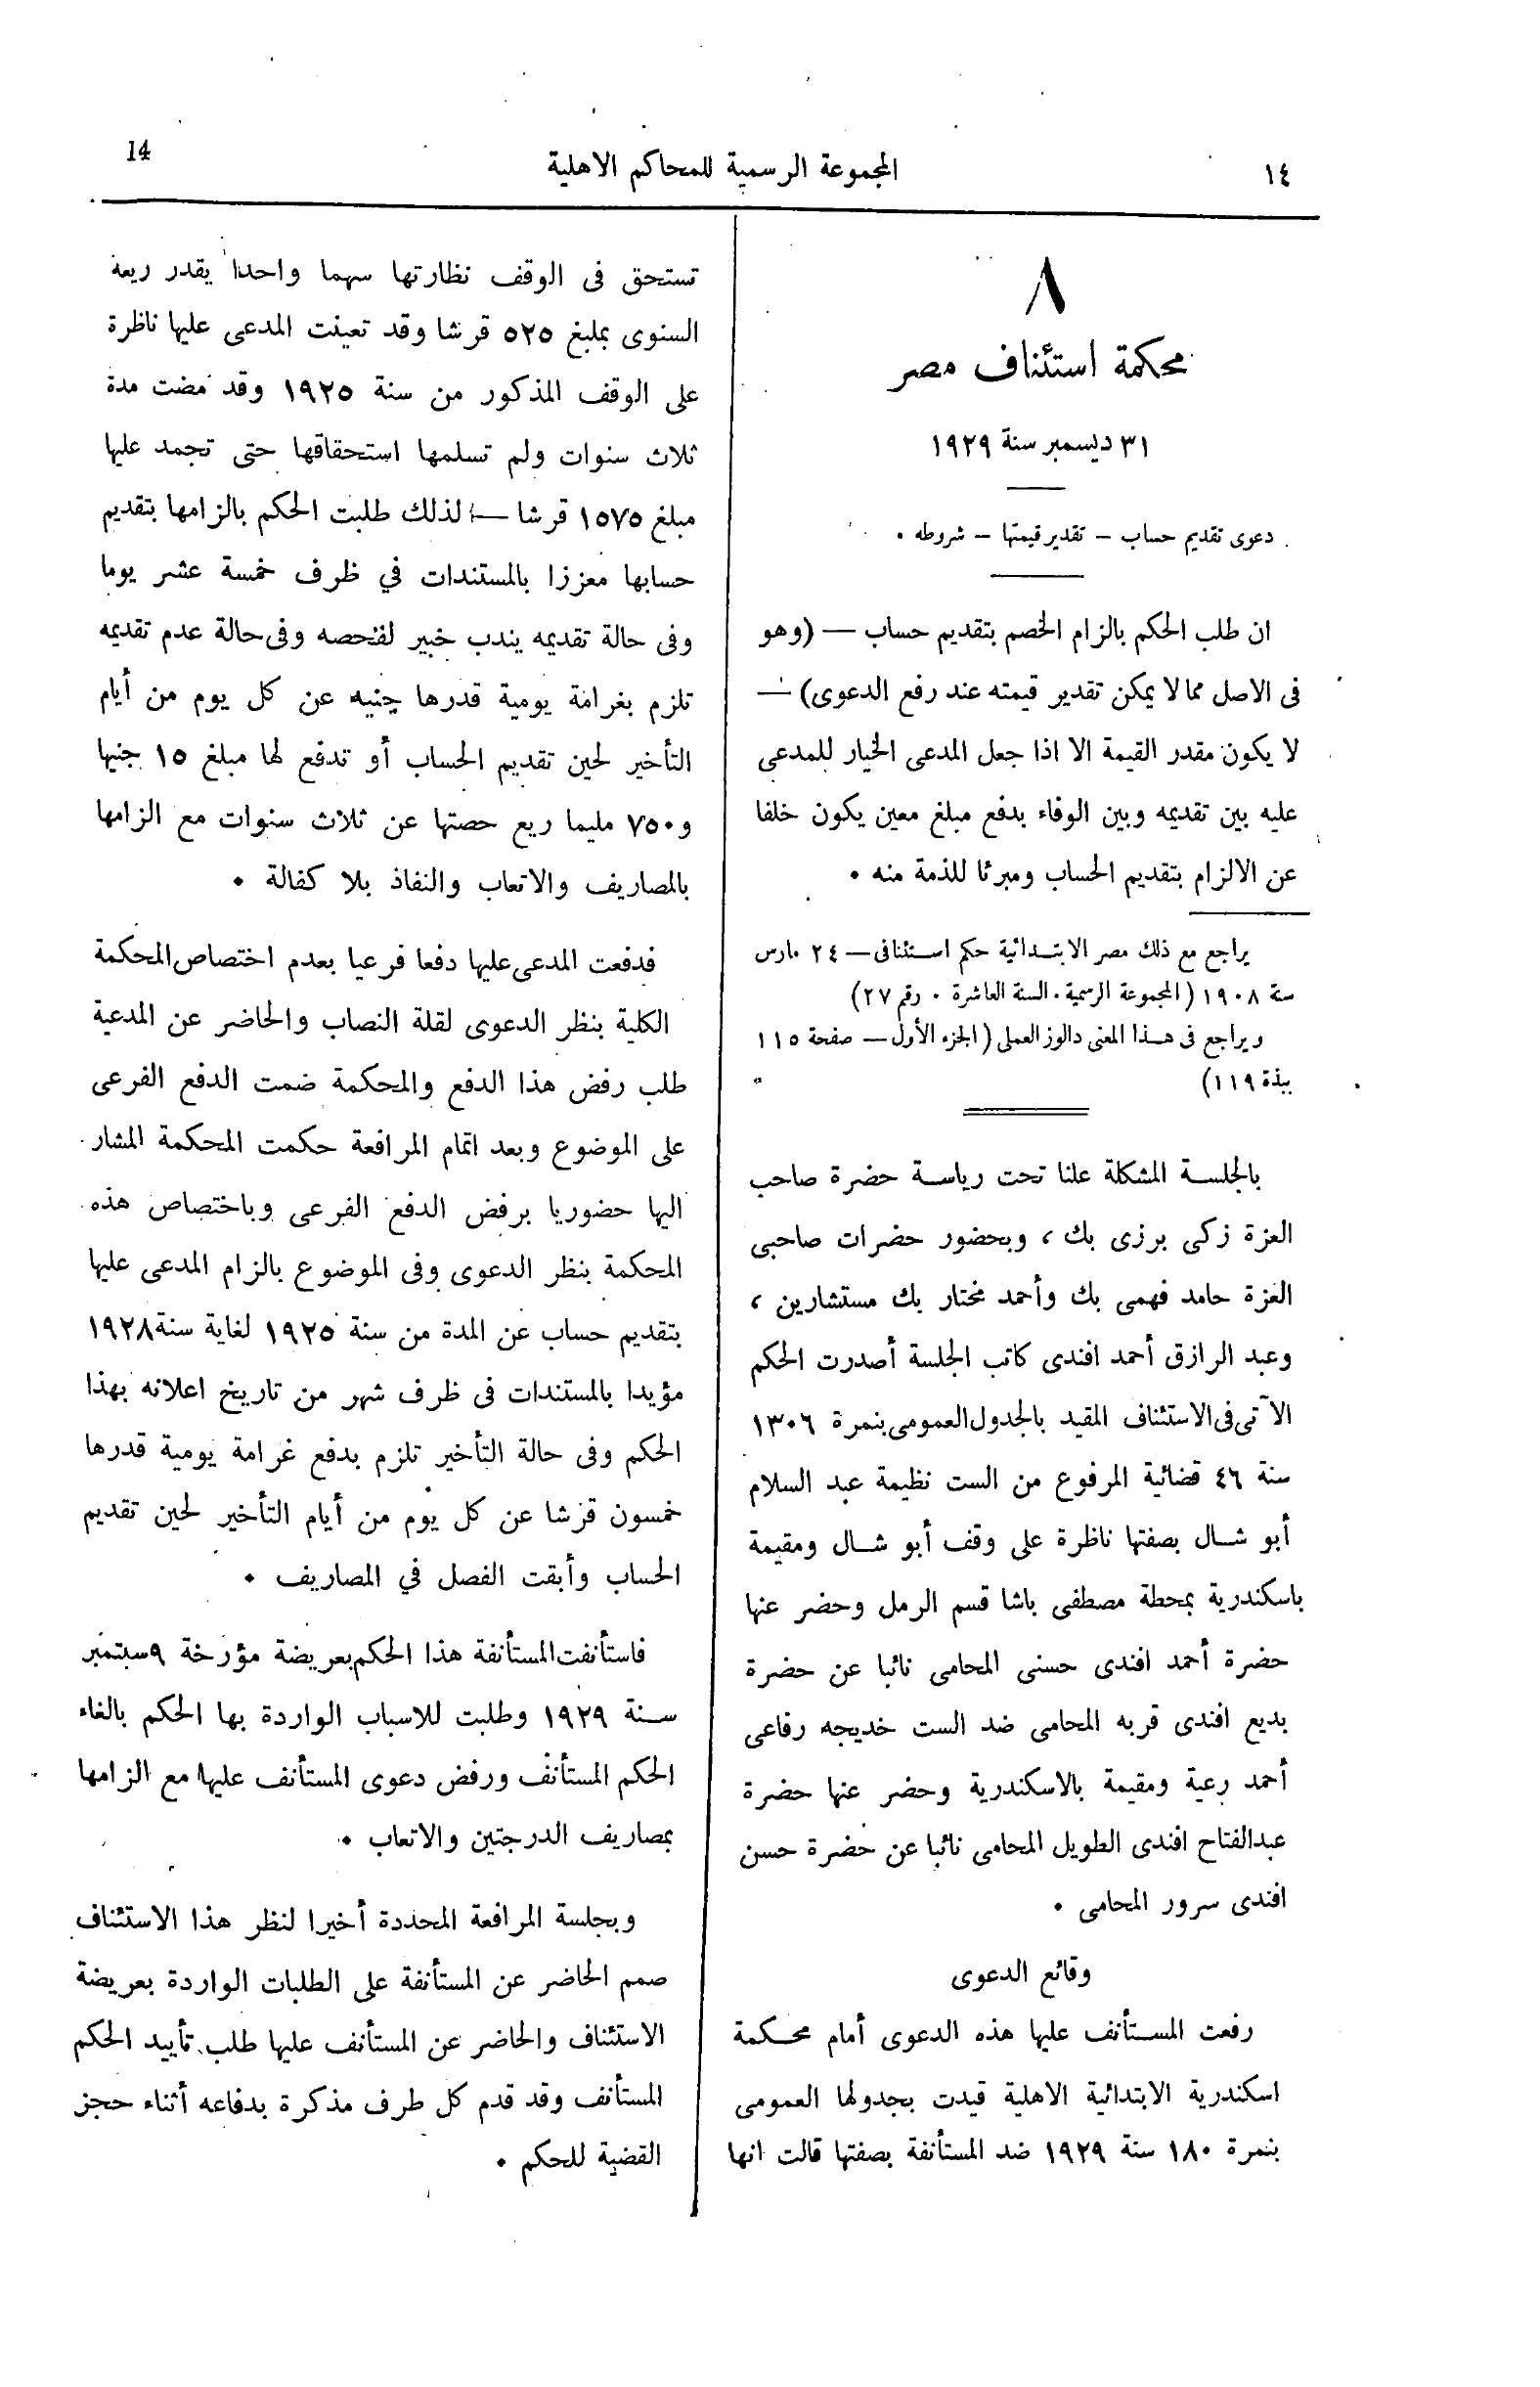 ١٤
المجموعة الرسمية للمحاكم الاهلية
14
٨
محكمة استئناف مصر
٣١ ديسمبر سنة ١٩٢٩
دعوى تقديم حساب – تقدير قيمتها – شروطه .
ان طلب الحكم بالزام الخصم بتقديم حساب — (وهو
فى الاصل مما لا يمكن تقدير قيمته عند رفع الدعوى) —
لا يكون مقدر القيمة الا اذا جعل المدعى الخيار للمدعى
عليه بين تقديمه وبين الوفاء بدفع مبلغ معين يكون خلفا
عن الالزام بتقديم الحساب ومبرئا للذمة منه .
يراجع مع ذلك مصر الابتدائية حكم استئنافى — ٢٤ مارس
سنة ١٩٠٨ (المجموعة الرسمية . السنة العاشرة . رقم ٢٧)
ويراجع فى هذا المعنى دالوز العملى (الجزء الأول — صفحة ١١٥
نبذة ١١٩)
بالجلسة المشكلة علنا تحت رياسة حضرة صاحب
العزة زكى برزى بك ، وبحضور حضرات صاحبى
العزة حامد فهمى بك وأحمد مختار بك مستشارين ،
وعبد الرازق أحمد افندى كاتب الجلسة أصدرت الحكم
الآتى فى الاستئناف المقيد بالجدول العمومى بنمرة ١٣٠٦
سنة ٤٦ قضائية المرفوع من الست نظيمة عبد السلام
أبو شال بصفتها ناظرة على وقف أبو شال ومقيمة
باسكندرية بمحطة مصطفى باشا قسم الرمل وحضر عنها
حضرة أحمد افندى حسنى المحامى نائبا عن حضرة
بديع افندى قربه المحامى ضد الست خديجه رفاعى
أحمد رعية ومقيمة بالاسكندرية وحضر عنها حضرة
عبدالفتاح افندى الطويل المحامى نائبا عن حضرة حسن
افندى سرور المحامى .
وقائع الدعوى
رفعت المستأنف عليها هذه الدعوى أمام محكمة
اسكندرية الابتدائية الاهلية قيدت بجدولها العمومى
بنمرة ١٨٠ سنة ١٩٢٩ ضد المستأنفة بصفتها قالت انها
تستحق فى الوقف نظارتها سهما واحدا يقدر ريعه
السنوى بمبلغ ٥٢٥ قرشا وقد تعينت المدعى عليها ناظرة
على الوقف المذكور من سنة ١٩٢٥ وقد مضت مدة
ثلاث سنوات ولم تسلمها استحقاقها حتى تجمد عليها
مبلغ ١٥٧٥ قرشا — لذلك طلبت الحكم بالزامها بتقديم
حسابها معززا بالمستندات في ظرف خمسة عشر يوما
وفى حالة تقديمه يندب خبير لفحصه وفى حالة عدم تقديمه
تلزم بغرامة يومية قدرها جنيه عن كل يوم من أيام
التأخير لحين تقديم الحساب أو تدفع لها مبلغ ١٥ جنيها
و٧٥٠ مليما ريع حصتها عن ثلاث سنوات مع الزامها
بالمصاريف والاتعاب والنفاذ بلا كفالة .
فدفعت المدعى عليها دفعا فرعيا بعدم اختصاص المحكمة
الكلية بنظر الدعوى لقلة النصاب والحاضر عن المدعية
طلب رفض هذا الدفع والمحكمة ضمت الدفع الفرعى
على الموضوع وبعد اتمام المرافعة حكمت المحكمة المشار
اليها حضوريا برفض الدفع الفرعى وباختصاص هذه
المحكمة بنظر الدعوى وفى الموضوع بالزام المدعى عليها
بتقديم حساب عن المدة من سنة ١٩٢٥ لغاية سنة ١٩٢٨
مؤيدا بالمستندات فى ظرف شهر من تاريخ اعلانه بهذا
الحكم وفى حالة التأخير تلزم بدفع غرامة يومية قدرها
خمسون قرشا عن كل يوم من أيام التأخير لحين تقديم
الحساب وأبقت الفصل في المصاريف .
فاستأنفت المستأنفة هذا الحكم بعريضة مؤرخة ٩ سبتمبر
سنة ١٩٢٩ وطلبت للاسباب الواردة بها الحكم بالغاء
الحكم المستأنف ورفض دعوى المستأنف عليها مع الزامها
بمصاريف الدرجتين والاتعاب .
وبجلسة المرافعة المحددة أخيرا لنظر هذا الاستئناف
صمم الحاضر عن المستأنفة على الطلبات الواردة بعريضة
الاستئناف والحاضر عن المستأنف عليها طلب تأييد الحكم
المستأنف وقد قدم كل طرف مذكرة بدفاعه أثناء حجز
القضية للحكم .